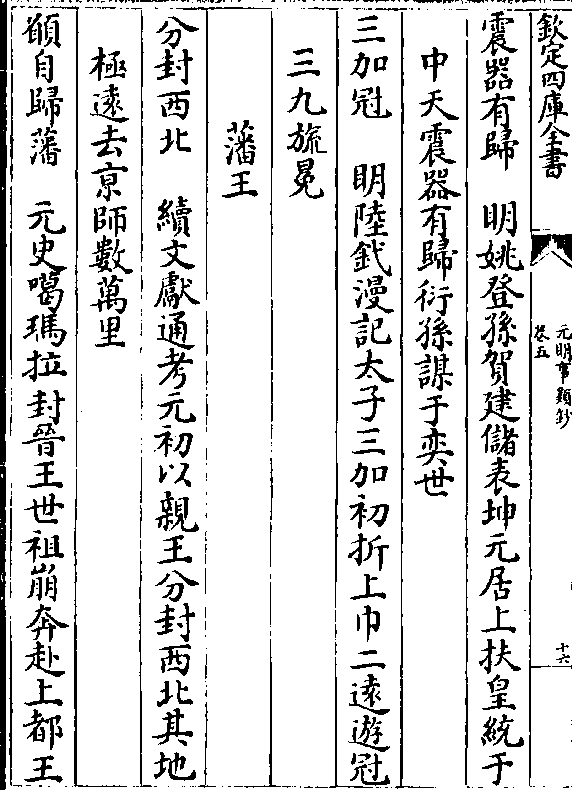 欽定四庫全書
元明事類鈔
卷五
十六
震器有歸　明姚登孫賀建儲表坤元居上扶皇統于
中天震器有歸衍孫謀于奕世
三加冠　明陸釴漫記太子三加初折上巾二遠遊冠
三九旒冕
藩王
分封西北　續文獻通考元初以親王分封西北其地
極遠去京師數萬里
願自歸藩　元史噶瑪拉封晉王世祖崩奔赴上都王